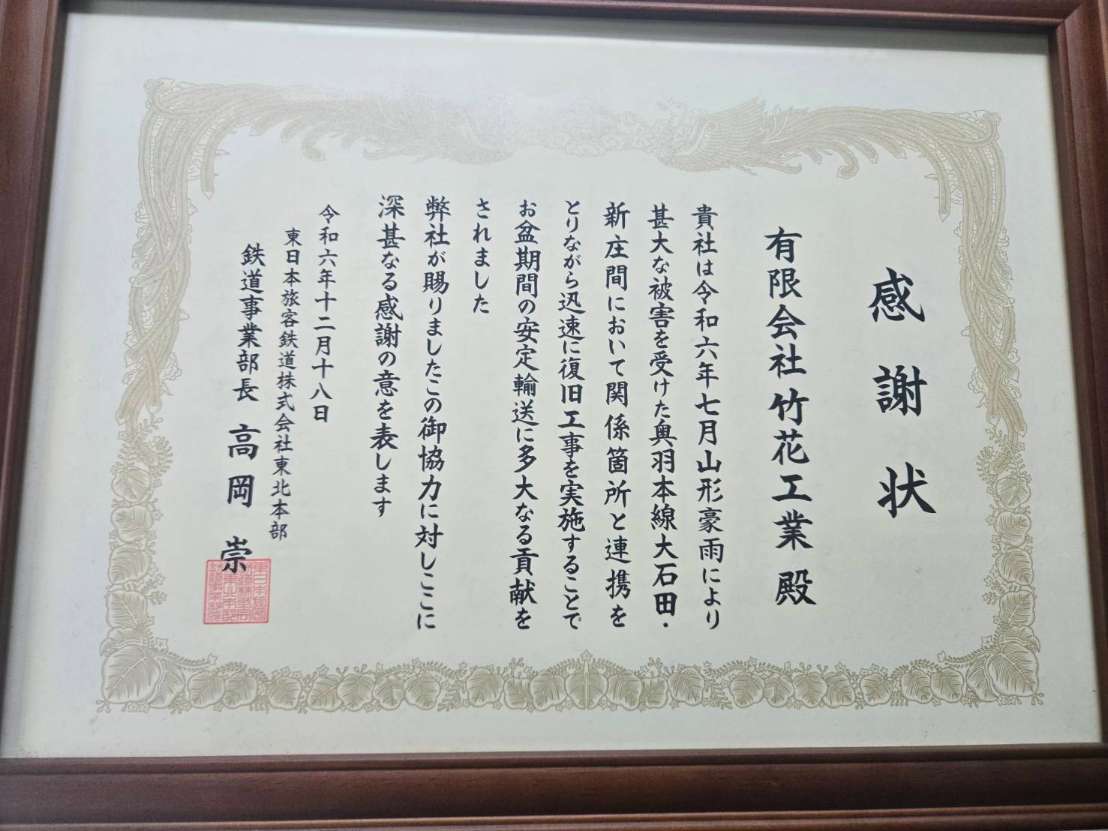 感謝状
有限会社竹花工業 殿
貴社は令和六年七月山形豪雨により
甚大な被害を受けた奥羽本線大石田・
新庄間において関係箇所と連携を
とりながら迅速に復旧工事を実施することで
お盆期間の安定輸送に多大なる貢献を
されました
弊社が賜りましたこの御協力に対しここに
深甚なる感謝の意を表します
令和六年十二月十八日
東日本旅客鉄道株式会社東北本部
鉄道事業部長 高岡 崇